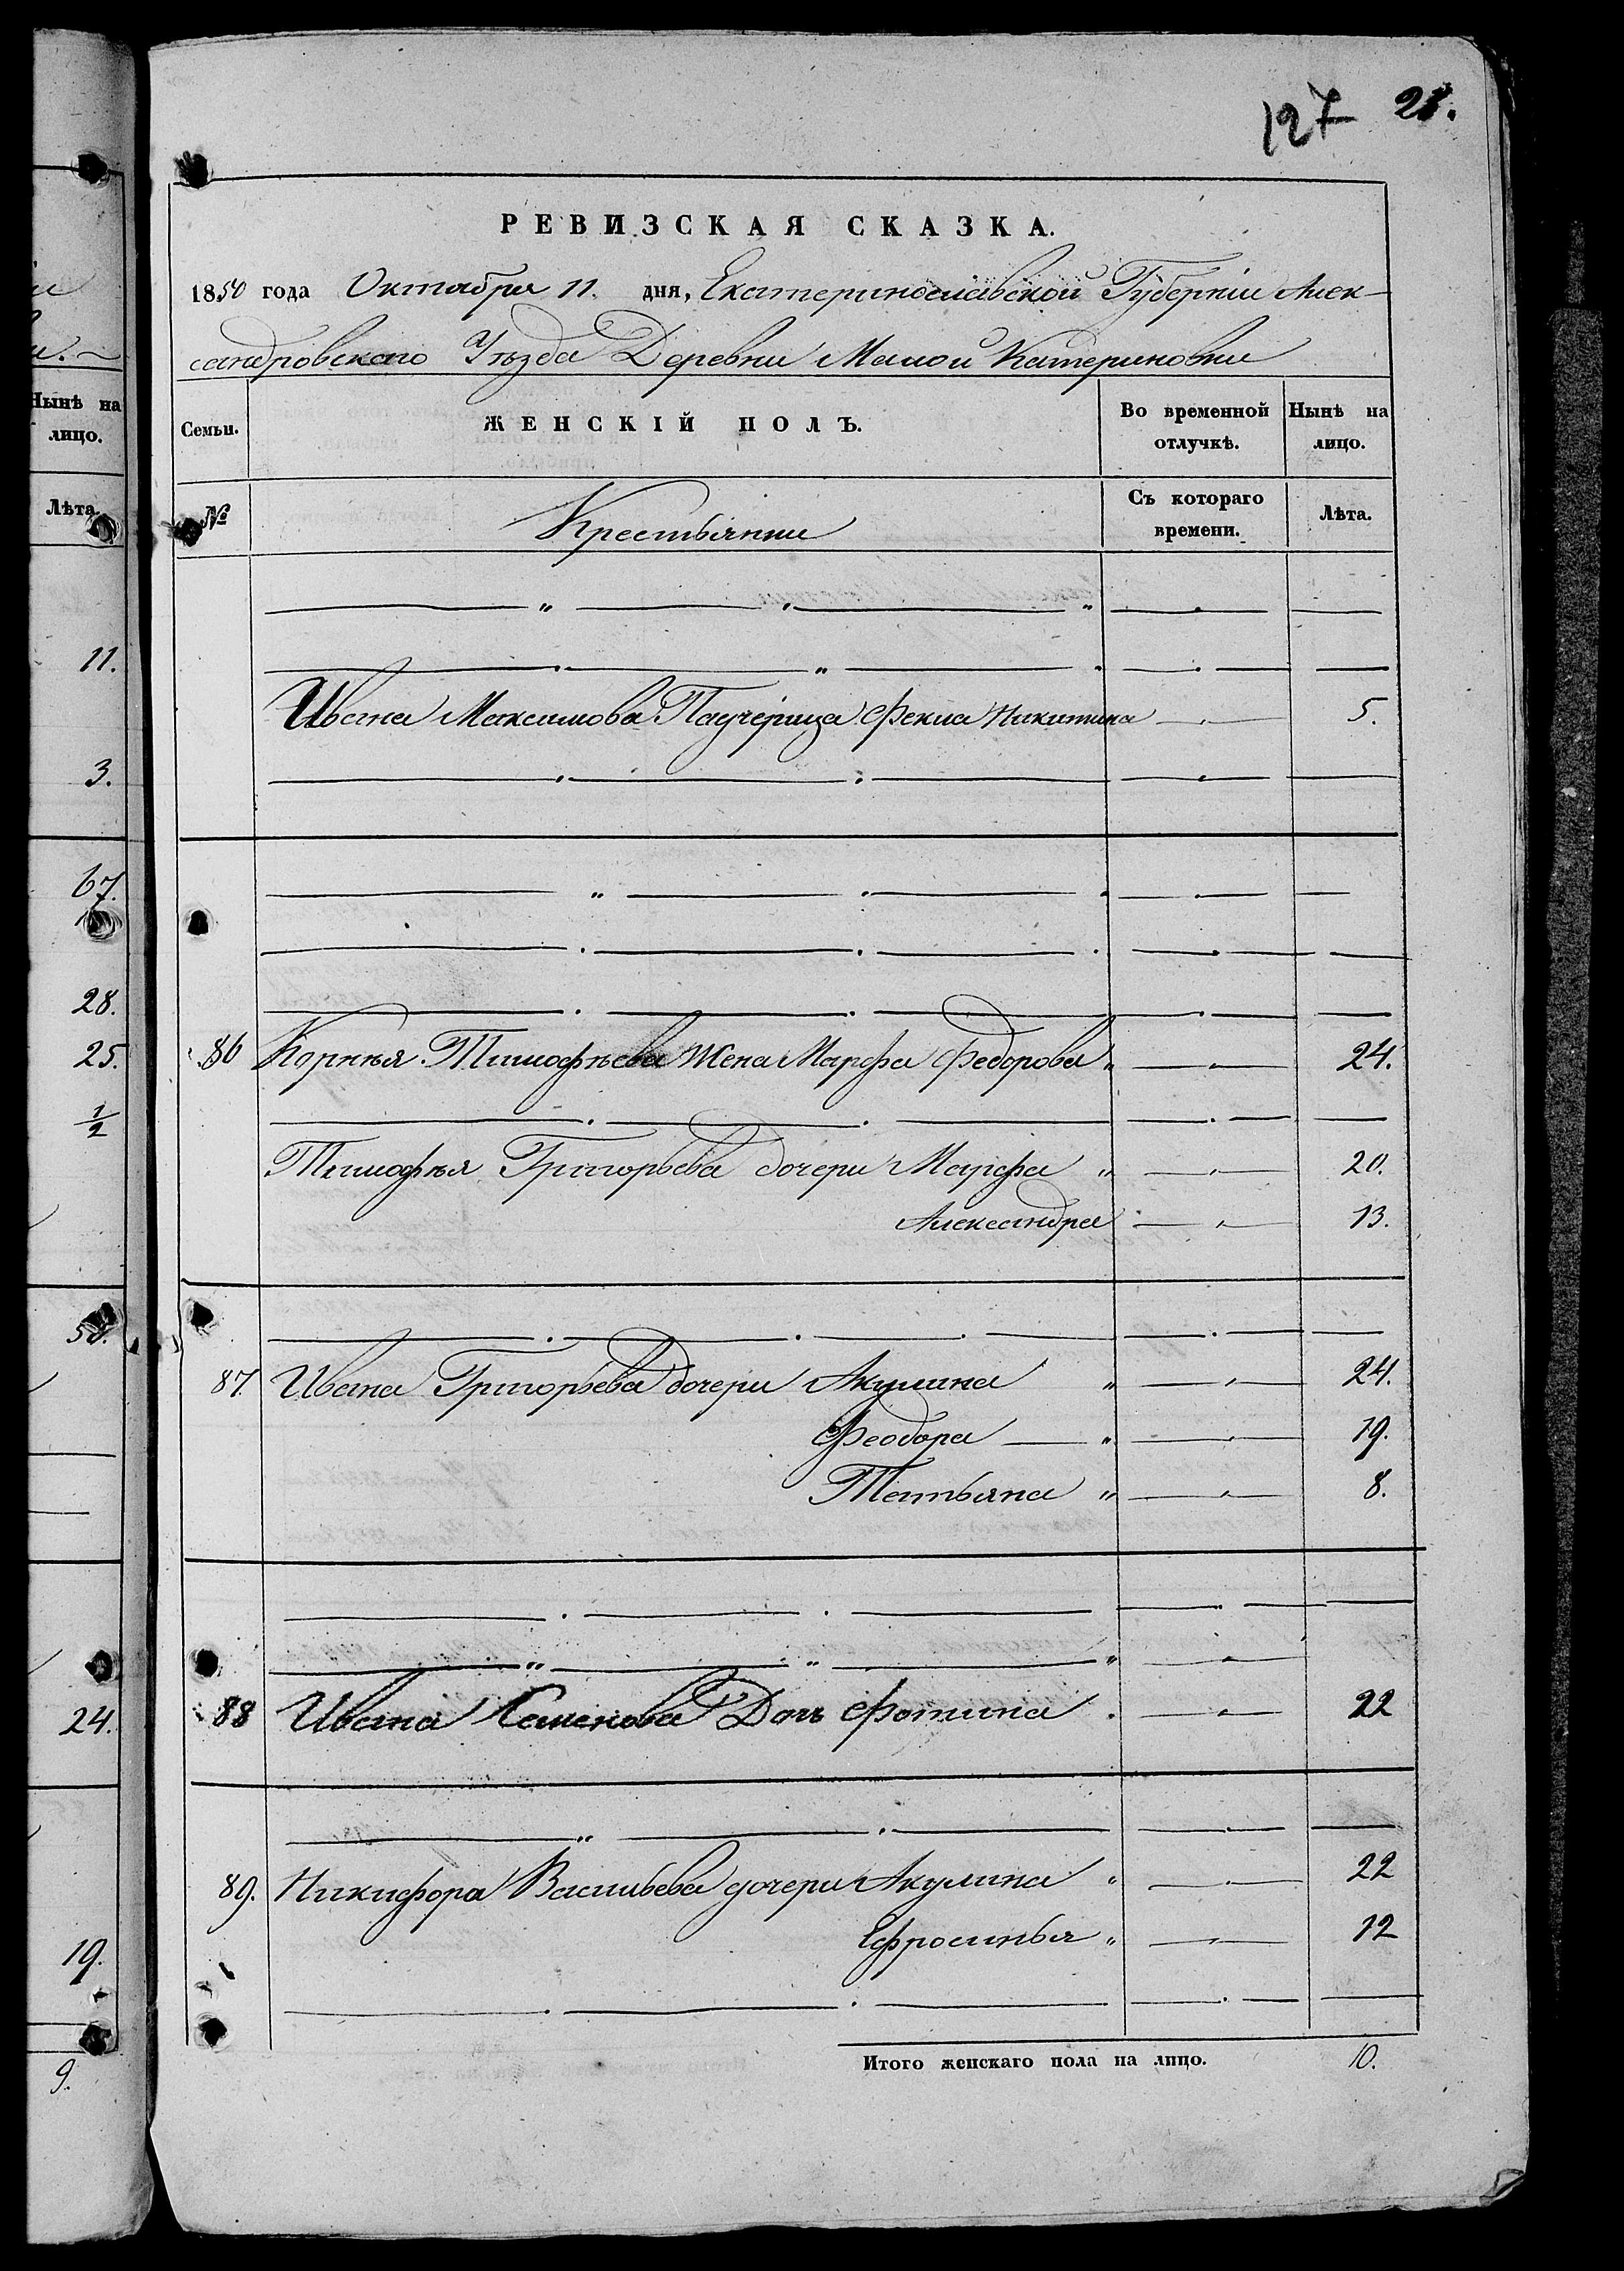 127 28.
РЕВИЗСКАЯ СКАЗКА.
1850 года Октября 11. дня, Екатеринославской Губерніи Алек-
сандровскаго Уѣзда Деревни Малой Катериновки
Семьи. ЖЕНСКІЙ ПОЛЪ. Во временной отлучкѣ. Нынѣ на лицо.
№ Крестьянки Съ котораго времени. Лѣта.
Ивана Максимова Падчерица Фекла Никитина 5.
86 Корнѣя Тимофѣева Жена Марфа Федорова " 24.
Тимофѣя Григорьева дочери Марфа " 20.
Александра 13.
87. Ивана Григорьева дочери Акулина " 24.
Феодора " 19.
Татьяна " 8.
88 Ивана Семенова Дочь Фотина 22
89. Никифора Васильева дочери Акулина " 22
Ефросинья " 12
Итого женскаго пола на лицо. 10.
Нынѣ на
лицо.
Лѣта.
11.
3.
67.
28.
25.
1/2
24.
19.
9.